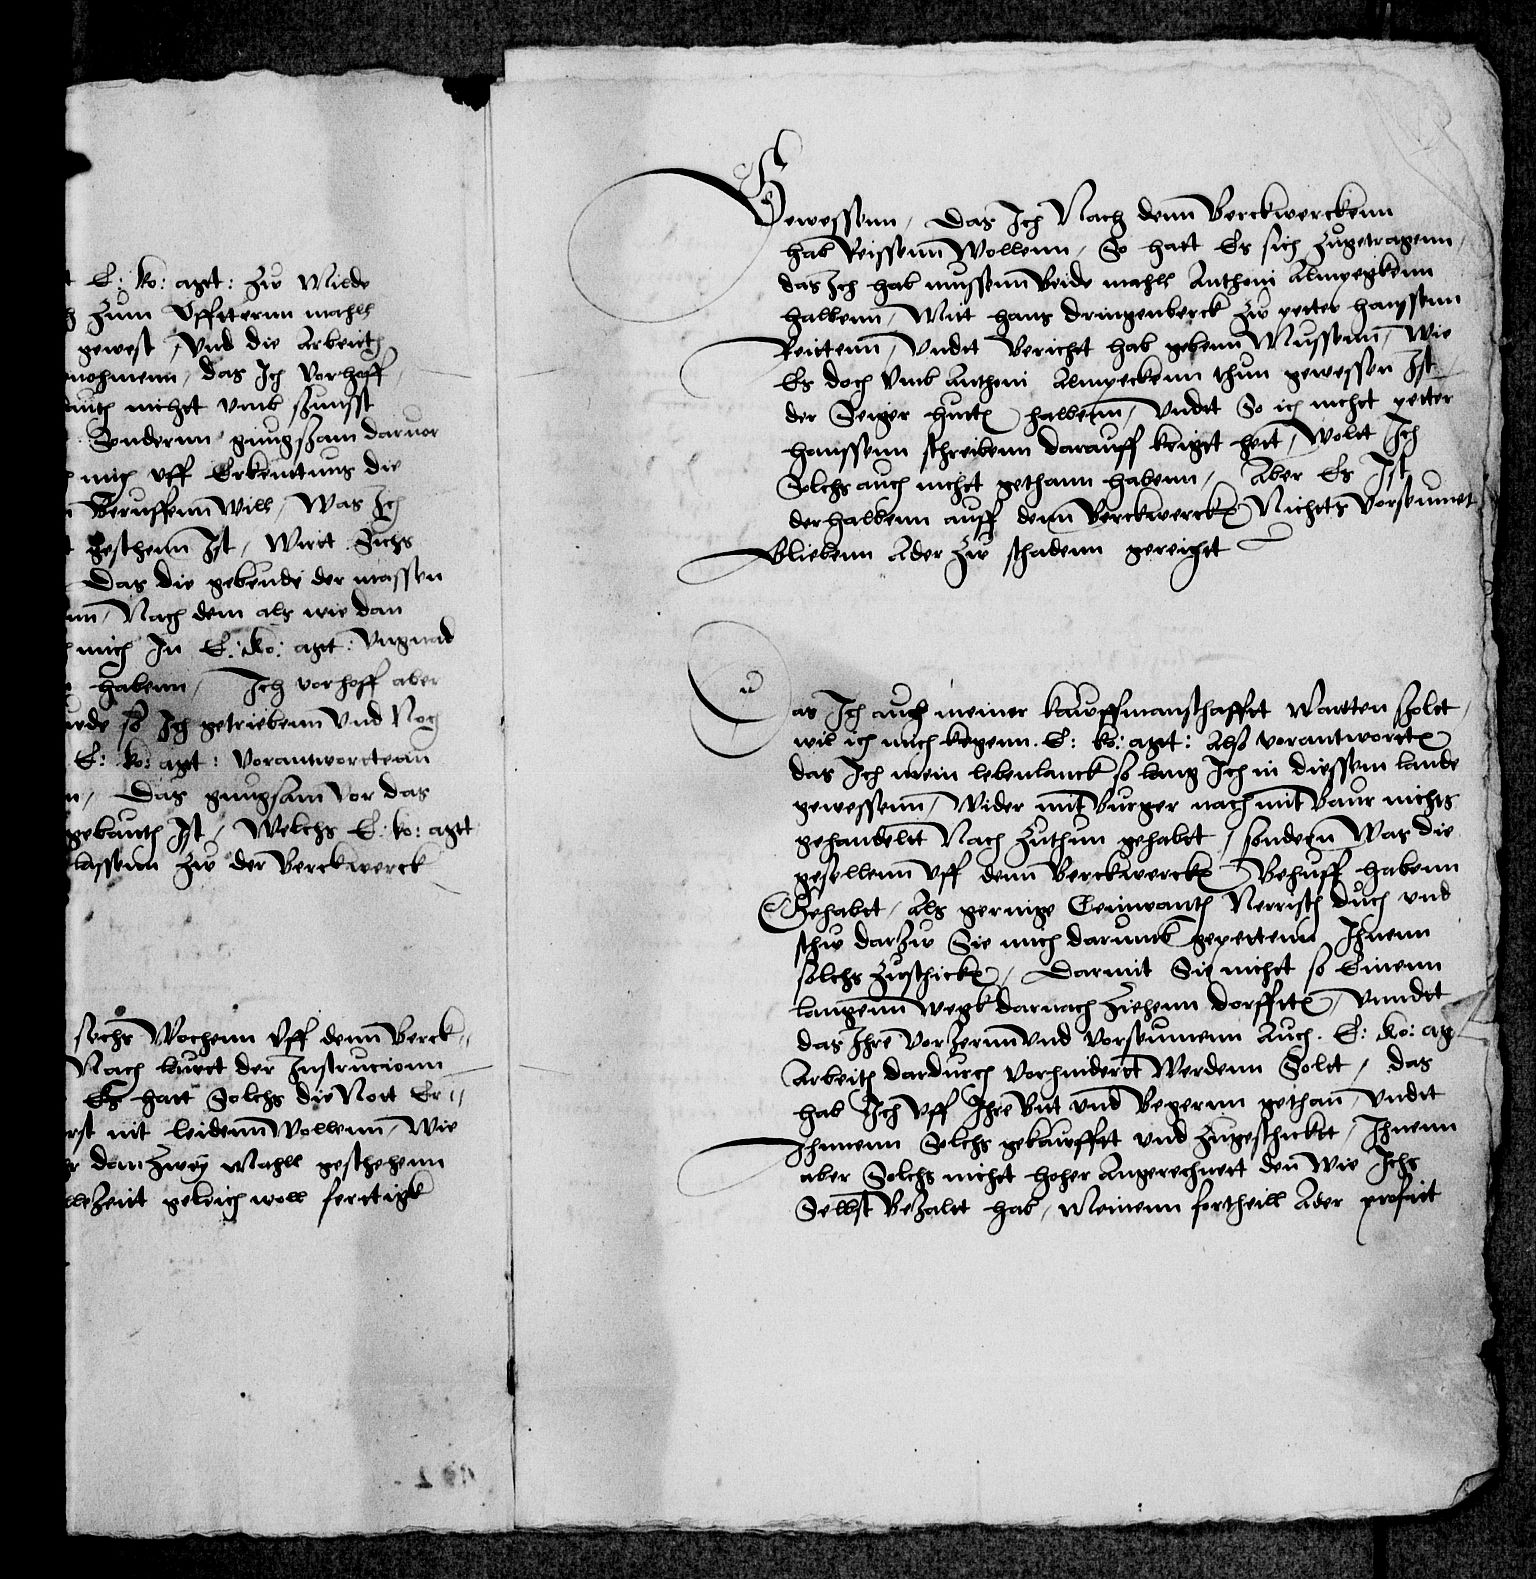 E: ko: agt: zw Milde
zum Vfftternn mahll
gewest / vnd die Arbeith
nohmenn, das Ich vorhoff
nicht vmb sunst
Sondernn gnugsam daruor
mich vff Erkentnus die
Beruffenn will, Was Ich
gescheen Ist, Wirt Sichs
Das die gebeude der massen
Nach dem als wie dan
mich In E: ko: agt: vngnad
habenn, Ich vorhoff aber
so Ich getriebenn vnd Noch
E: ko: agt: vorantworttenn
Das gnugsam vor das
Ist / Welchs E: ko: agt
lassenn zw der Berckwerck
sechs Wochenn vff denn Berck-
Nach lautt der Instrucionn
Es hatt Solchs die Nott Er-
nit leidenn wollenn, Wie
dan zwey Mahll geschehenn
gleich woll fertigk
Gewessenn, Das Ich Nach denn Berckwerckenn
hab Reissenn Wollenn, So hatt Es sich zugetragenn,
das Ich hab mussenn Beide mahll Anthoni Almpegkenn
halbenn, Mitt hans dringenberck zw petter hanssenn
Reittenn, vndt Bericht hab gebenn Mussenn, Wie
Es doch vmb Anthoni Almpeckenn thun gewessen Ist
der Seiger hutten halbenn, vndt So ich nicht petter
hanssenn schreibenn darauff krigt hett, Wolt Ich
Solchs auch nicht gethann habenn, Aber Es Ist
derhalbenn auff denn Berckwercken Nichtts vorseumet
Bliebenn Ader zw schadenn gereicht
Das Ich auch meiner kawffmanschafft Wartten solt,
wil ich mich kegenn E: ko: agt: Also vorantwortten
das Ich mein lebenlanck so lang Ich in diessem lande
gewessenn, Wider mit Burger nach mit Baur nichts
gehandeltt Nach zuthun gehabtt, sondern Was die
gesellenn vff denn Berckwercken Behuff habenn
Gehabt, Als geringe Leinwanth Nerrisch duch vnd
schw darzw Sie mich darumb gepettenn Ihnenn
solchs zuschicken, Darmit Sie nicht so Einenn
langenn wegk darnach ziehenn dorfften, vnndt
das Ihre vorzernn vnd vorseumenn Auch E: ko: ag
Arbeith dardurch vorhindertt Werdenn Solt, das
hab Ich vff Ihre Bit vnd Begernn gethan, vndt
Ihnnenn Solchs gekawfft vnd zugeschickt, Ihnenn
aber Solchs nicht hoher Angerechnett den Wie Ichs
Selbst Bezalt hab, Meinenn fortheill Ader profeit